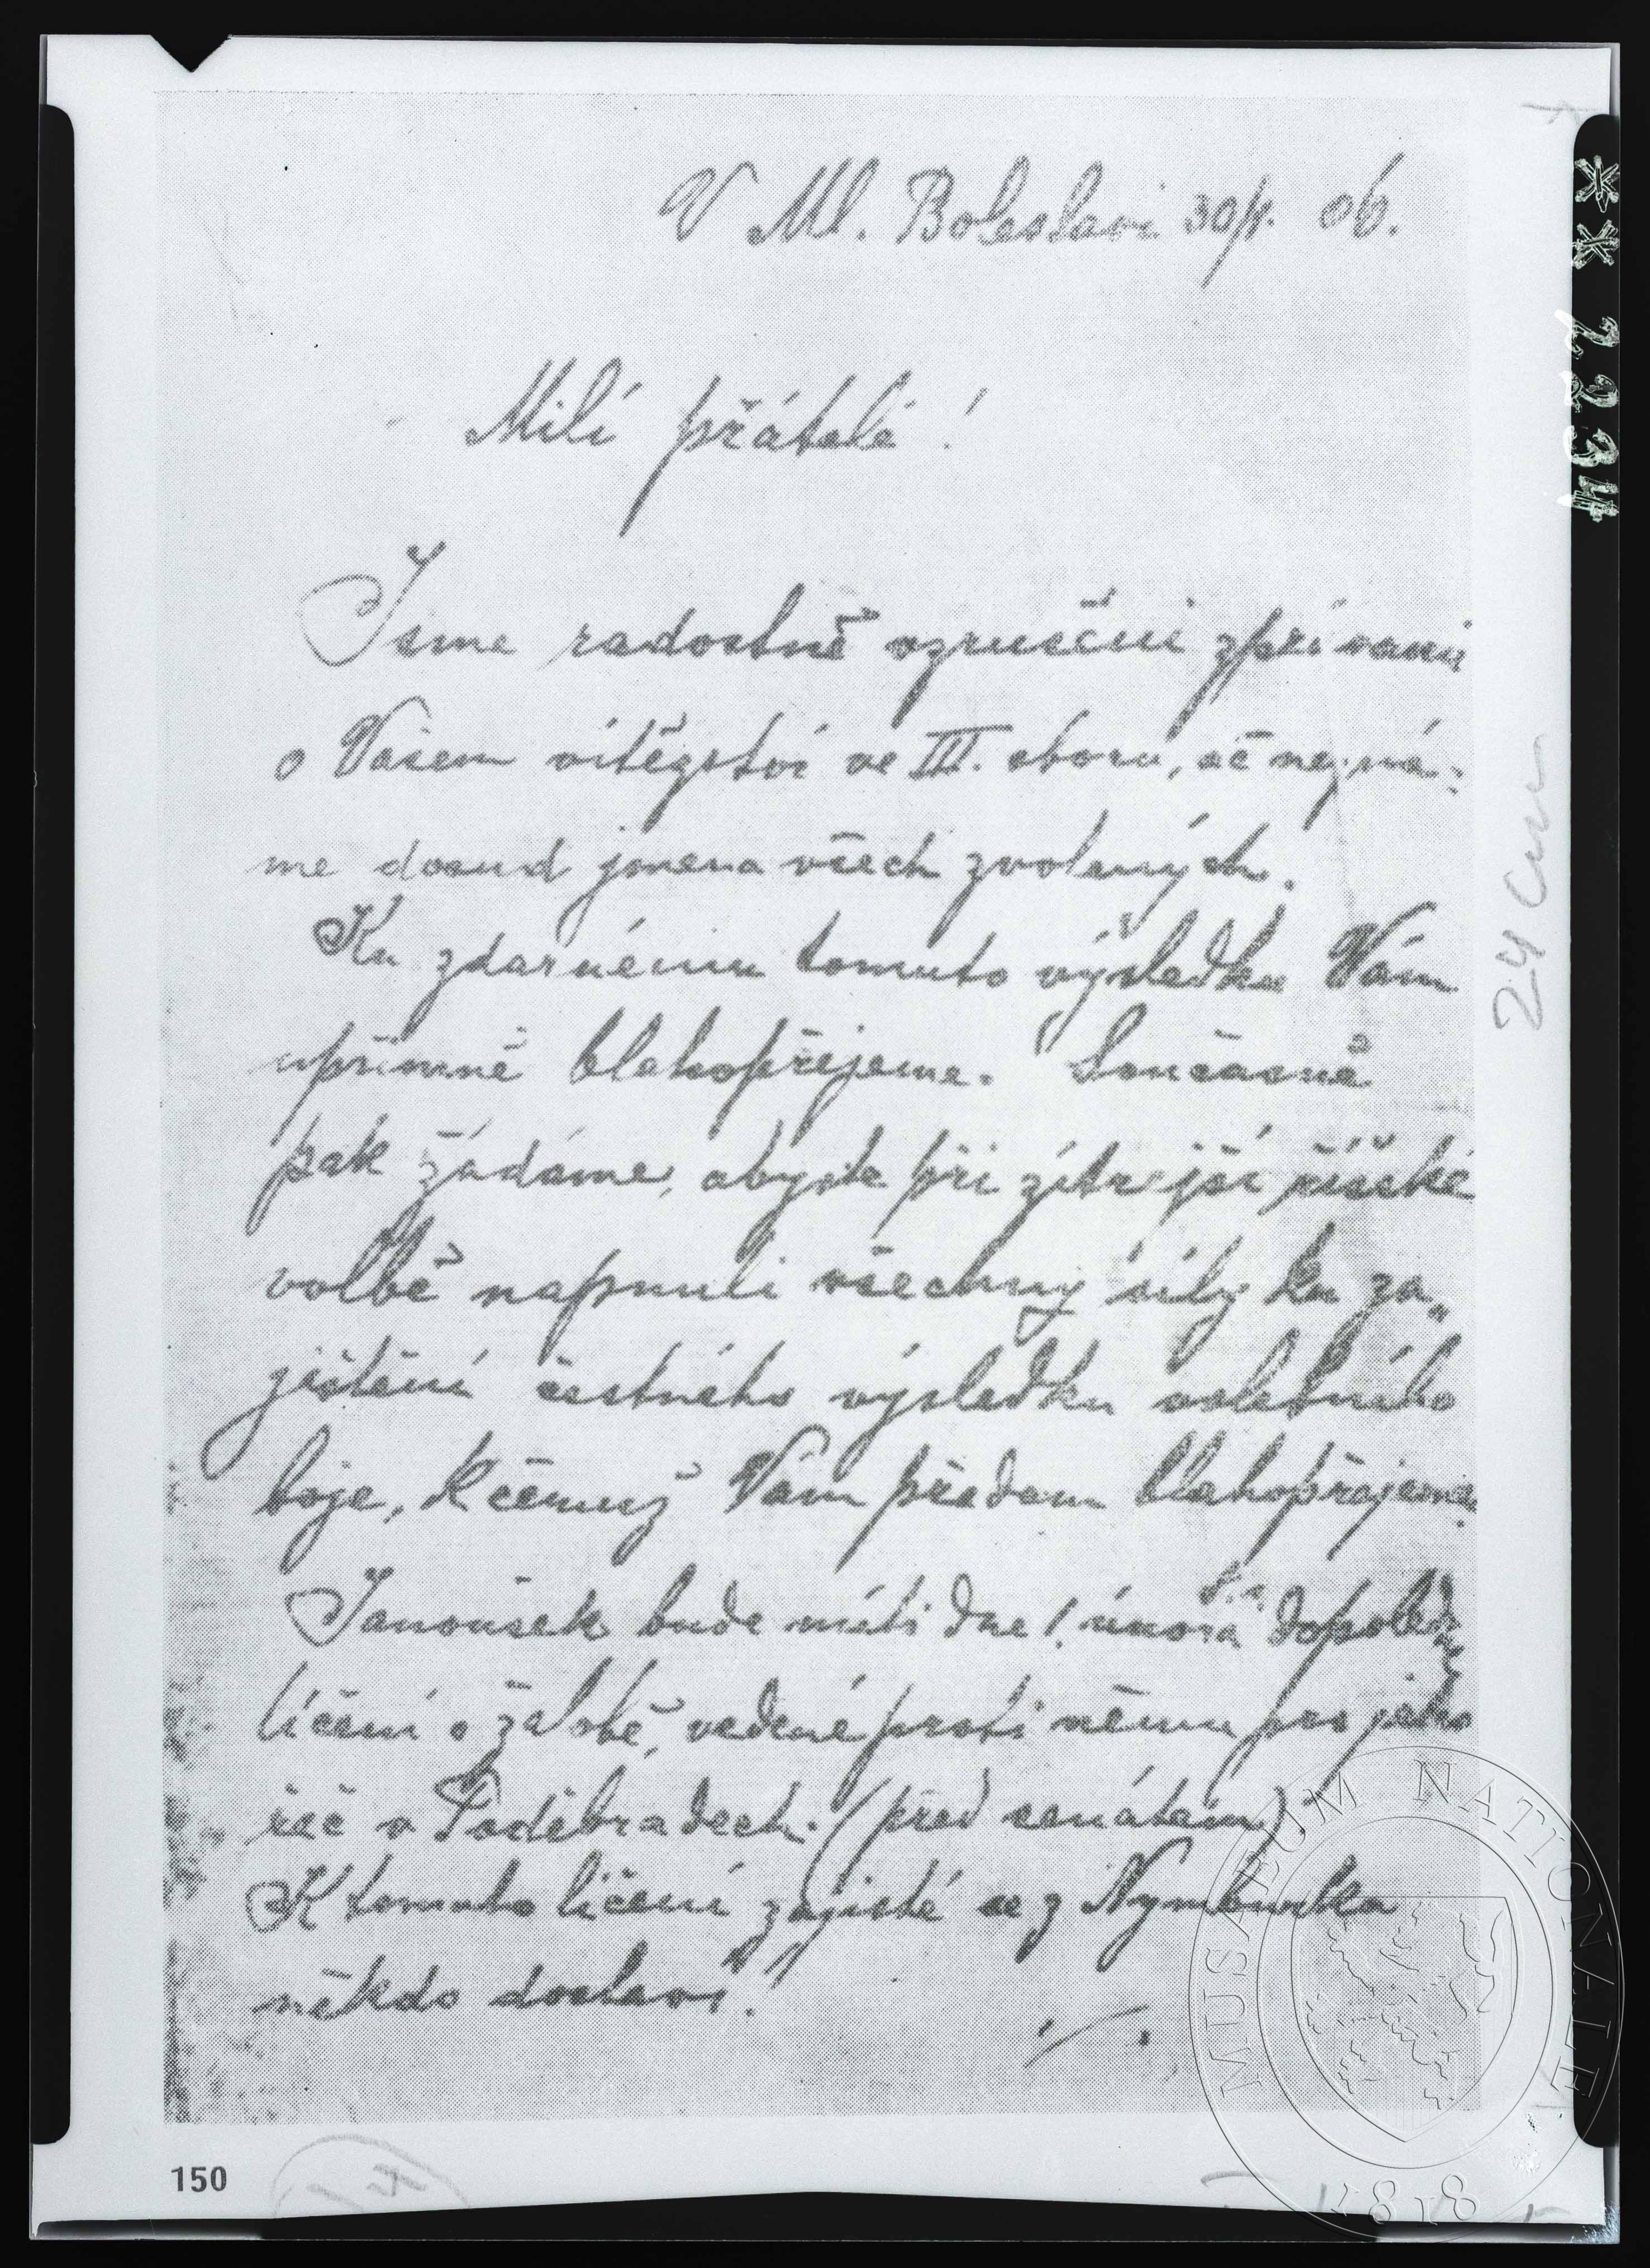 V Ml. Boleslavi 30/1. 06.
Milí přátelé!
Jsme radostně vzrušeni zprávami
o Vašem vítězství ve III. sboru, ač nezná-
me dosud jmena všech zvolených.
Ku zdarnému tomuto výsledku Vám
upřímně blahopřejeme. Současně
pak žádáme, abyste při zítrejší říšské
volbě napnuli všechny síly ku za„
jištění čestného výsledku volebního
boje, k čemuž Vám předem blahopřejeme.
Janoušek bude míti dne 1. února dopoledne
líčení o žalobě, vedené proti němu pro jeho
řeč v Poděbradech. (před senátem).
K tomuto líčení zajisté se z Nymburka
někdo dostaví!
./.
150
24 cm
** 2234
MUSAEUM NATIONALE
1818